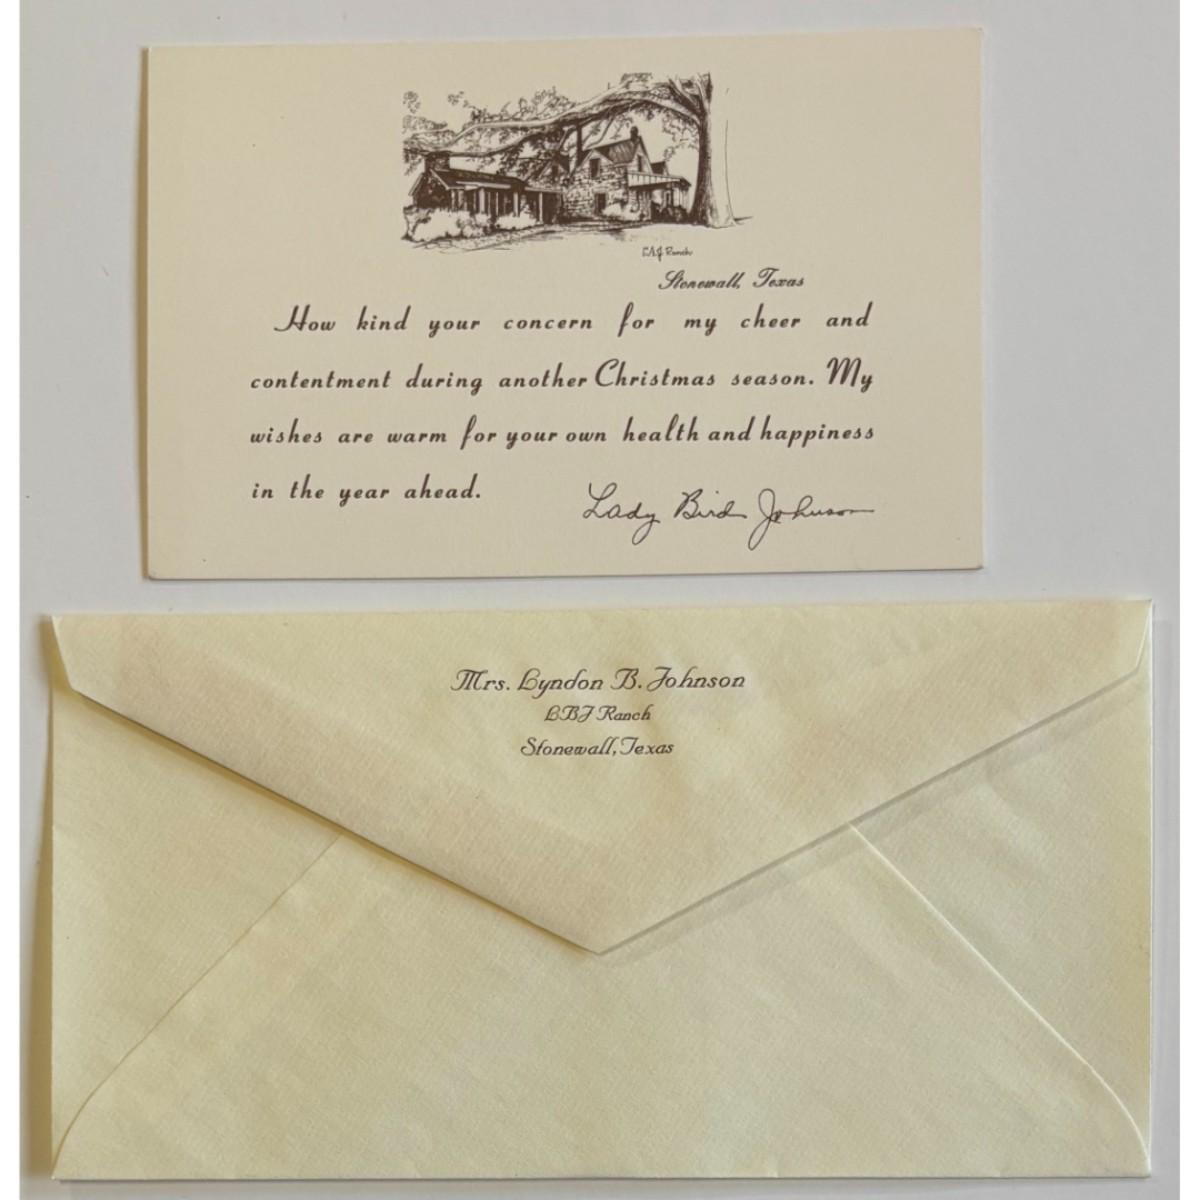 LBJ Ranch
Stonewall, Texas
How kind your concern for my cheer and
contentment during another Christmas season. My
wishes are warm for your own health and happiness
in the year ahead.
Lady Bird Johnson
Mrs. Lyndon B. Johnson
LBJ Ranch
Stonewall, Texas